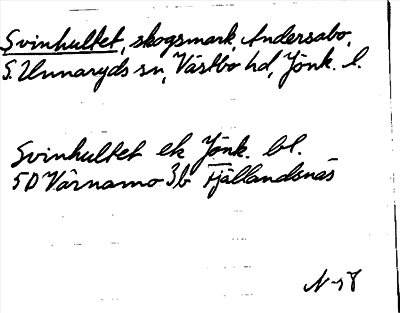 Svinhultet, skogsmark, Andersabo,
S. Unnaryds sn, Västbo hd, Jönk. l.
Svinhultet ek Jönk. bl.
5D Värnamo 3b Fjällandsnäs
N-58